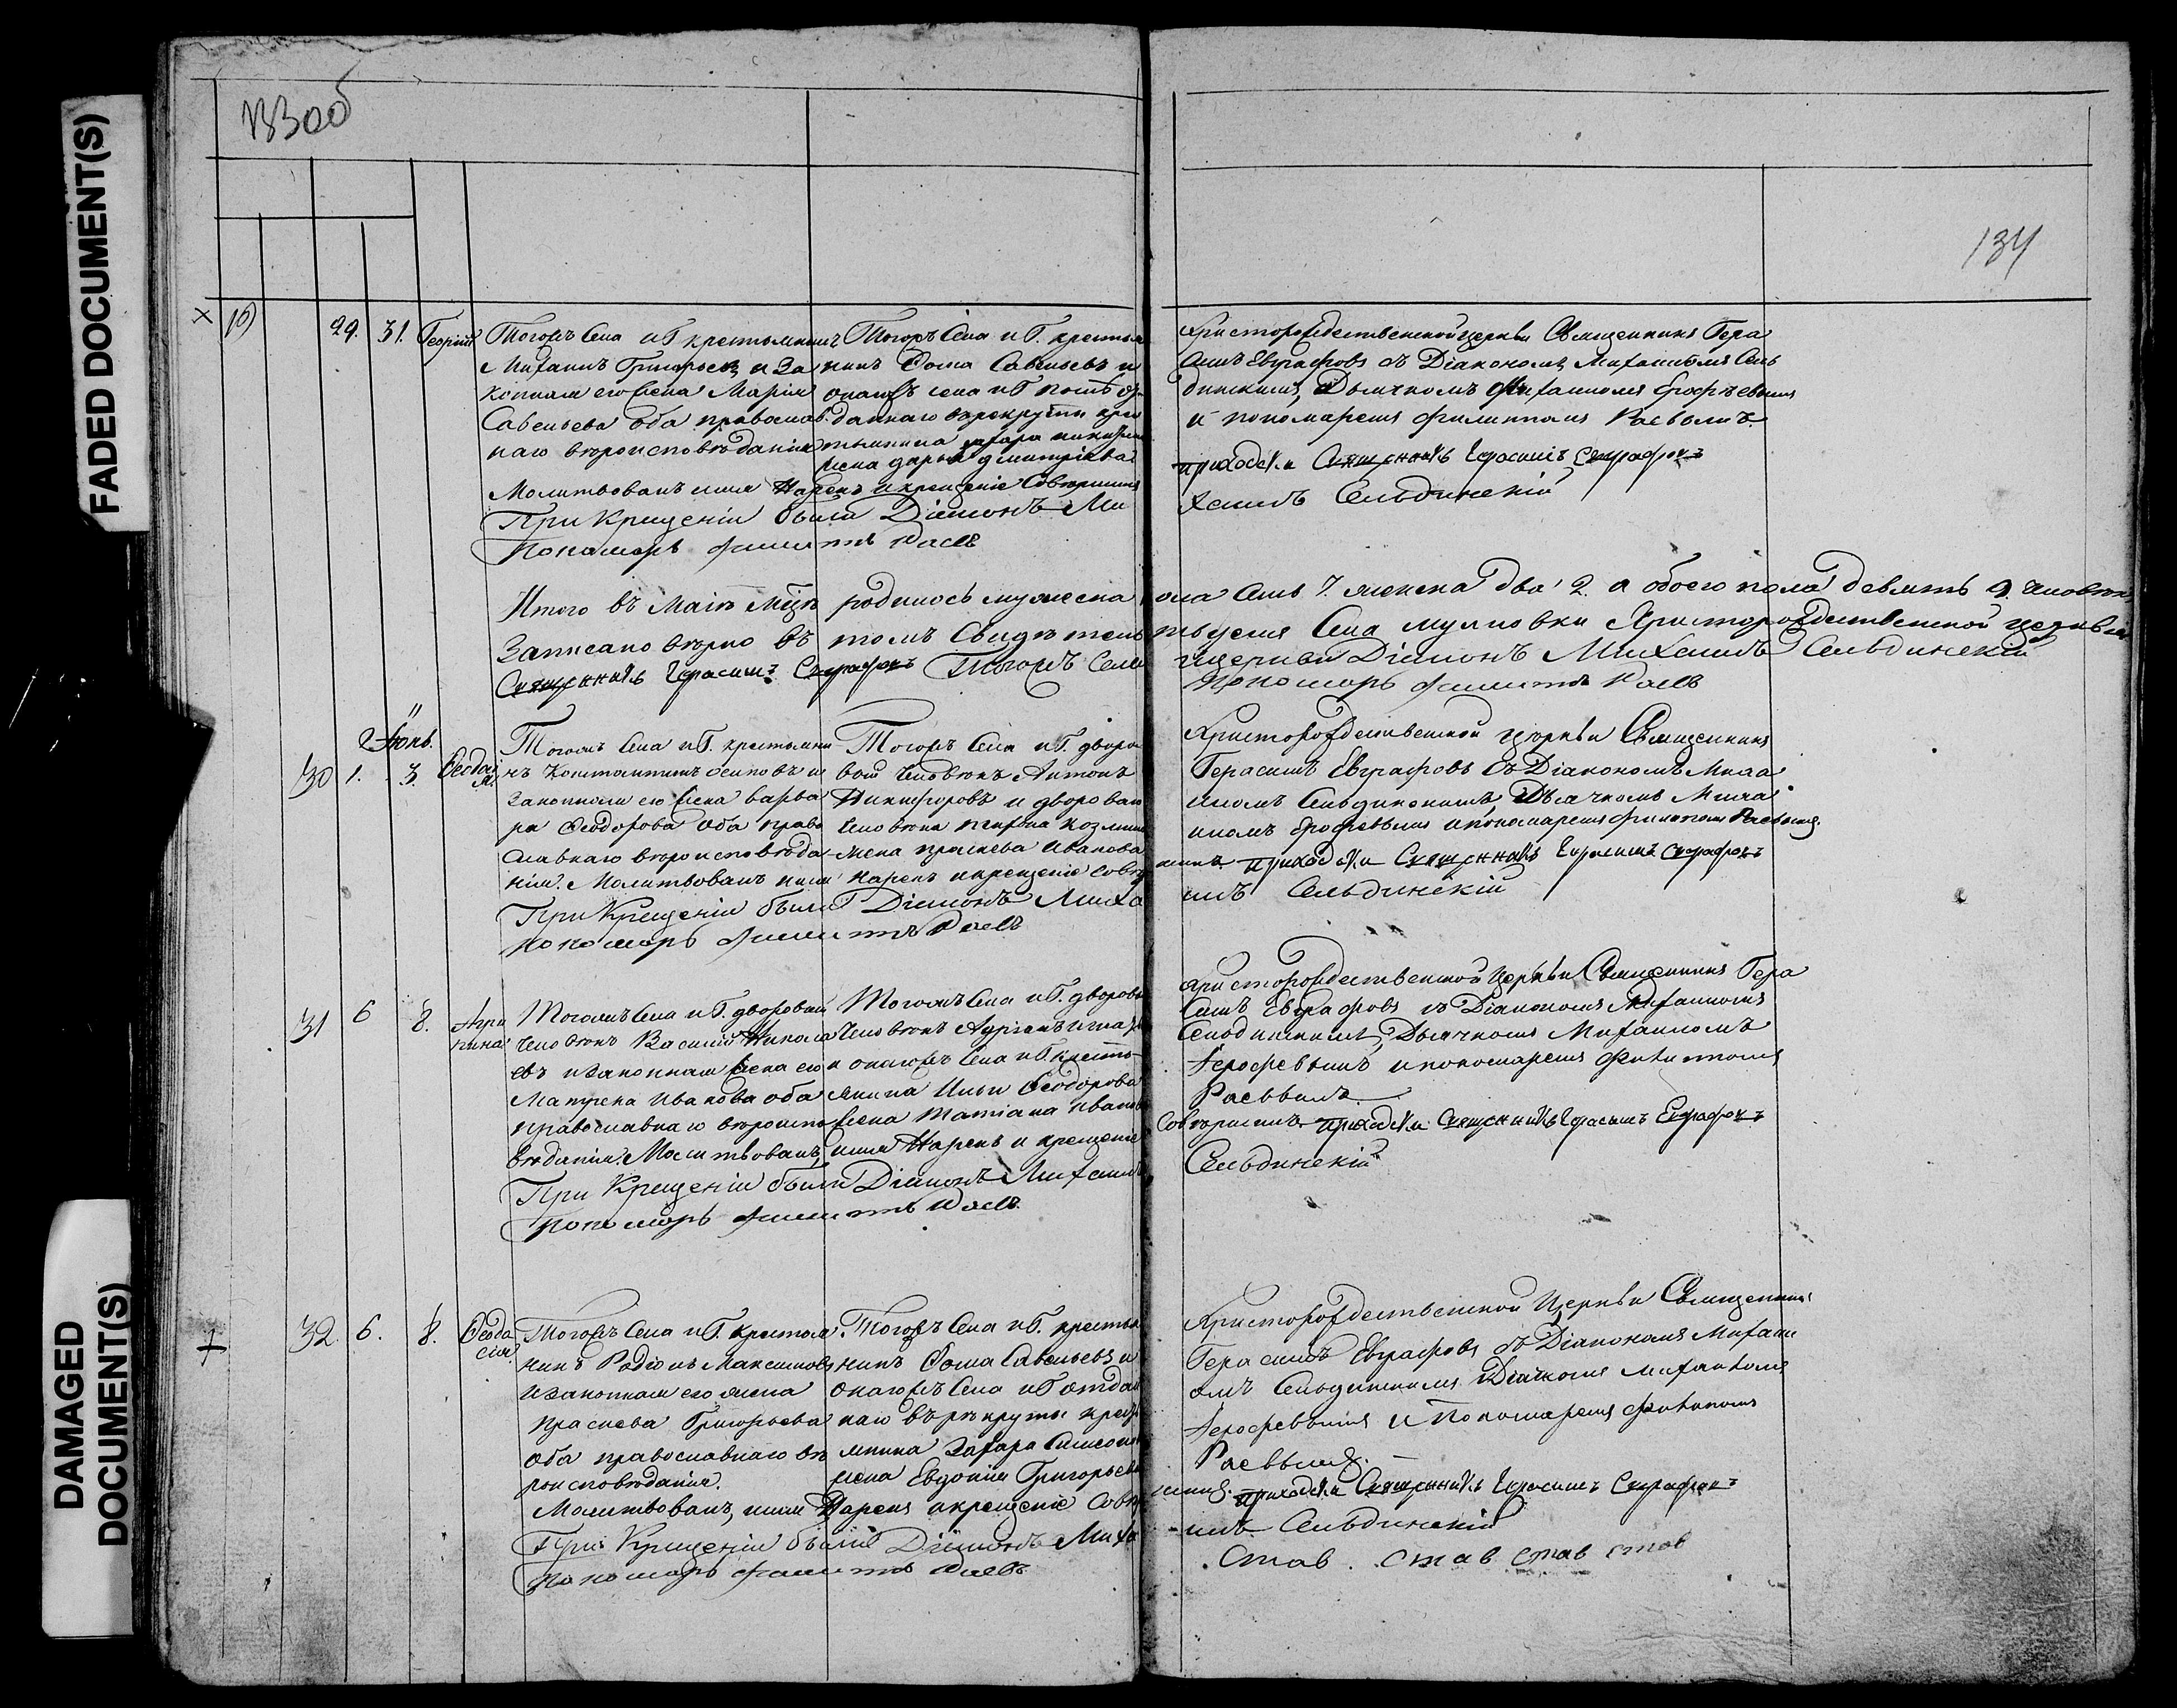 FADED DOCUMENT(S)
DAMAGED
DOCUMENT(S)
133об
134
29. 31. Георгій
Тогожъ Села и Г. крестьянинъ
Михаилъ Григорьевъ и За
конная его жена Марія
Савельева оба православ
наго вѣроисповѣданія
Тогожъ Села и Г. крестья
нинъ Ѳома Савельевъ и
онагожъ села и Г
даннаго въ рекруты крес
тьянина
жена дарья дмитріева
Христорождественской церкви Священникъ Гера
симъ Евграфовъ съ Діакономъ Михаиломъ Сель
динскимъ, Дьячкомъ Михаиломъ Ерофѣевымъ
и пономаремъ филиппомъ Раевымъ
Молитвовалъ имя Нарекъ и крещеніе Совершилъ
приходскій Священникъ Герасимъ Евграфовъ
При Крещеніи были Діаконъ Михаилъ Сельдинскій
Пономарь филиппъ Раевъ
Итого въ Маіѣ мцѣ родилось мужеска пола Семь 7. женска два 2. а обоего пола девять 9. человѣкъ
Записано вѣрно въ томъ Свидѣтельствуемъ Села Христорождественской церкви
Священникъ Герасимъ Евграфовъ Тогожъ Села церкви Діаконъ Михаилъ Сельдинскій
Пономарь филиппъ Раевъ
Іюнь.
30 1. 3. Ѳеодосія.
Тогожъ Села и Г. крестьяни
нъ Константинъ осиповъ и
законная его жена варва
ра Ѳеодорова Оба право
славнаго вѣроисповѣда
нія.
Тогожъ Села и Г. дворо
вой человѣкъ Антонъ
Никифоровъ и двороваго
человѣка козмина
жена Ивановa
Христорождественской Церкви Священникъ
Герасимъ Евграфовъ Съ Діакономъ Миха
иломъ Сельдинскимъ, Дьячкомъ Миха
иломъ Ерофѣевымъ и пономаремъ филиппомъ Раевымъ.
Молитвовалъ имя нарекъ и крещеніе совершилъ приходскій Священникъ Герасимъ Евграфовъ
При Крещеніи были Діаконъ Михаилъ Сельдинскій
пономарь филиппъ Раевъ
31 6 8. Агри
пина
Тогожъ Села и Г. дворовой
человѣкъ Василій Никола
евъ и законная жена его
Матрена Иванова оба
православнаго вѣроиспо
вѣданія.
Тогожъ Села и Г. дворовой
Человѣкъ
и онагожъ Села и Г. кресть
янина Ильи Ѳеодорова
жена Татіана Иванова
Христорождественской Церкви Священникъ Гера
симъ Евграфовъ съ Діакономъ Михаиломъ
Сельдинскимъ, Дьячкомъ Михаиломъ
Іерофѣевымъ и пономаремъ филиппомъ
Раевымъ
Молитвовалъ, имя Нарекъ и крещеніе Совершилъ приходскій Священникъ Герасимъ Евграфовъ
При Крещеніи были Діаконъ Михаилъ Сельдинскій
Пономарь филиппъ Раевъ
32. 6. 8. Ѳеодо
сія.
Тогожъ Села и Г. крестья
нинъ Родіонъ Максимовъ
и законная его жена
Праскева Григорьева
оба православнаго вѣ
роисповѣданія.
Тогожъ Села и Г. крестья
нинъ Ѳома Савельевъ и
онагожъ Села и Г отдан
наго въ рекруты кресть
янина Захара Симеонова
жена Евдокія Григорьева
Христорождественской Церкви Священникъ
Герасимъ Евграфовъ съ Діакономъ Михаи
ломъ Сельдинскимъ Дьячкомъ Михаиломъ
Іерофѣевымъ и Пономаремъ филиппомъ
Раевымъ.
Молитвовалъ, имя Нарекъ и крещеніе Совершилъ приходскій Священникъ Герасимъ Евграфовъ
При Крещеніи были Діаконъ Михаилъ Сельдинскій
Пономарь филиппъ Раевъ
став. став став став